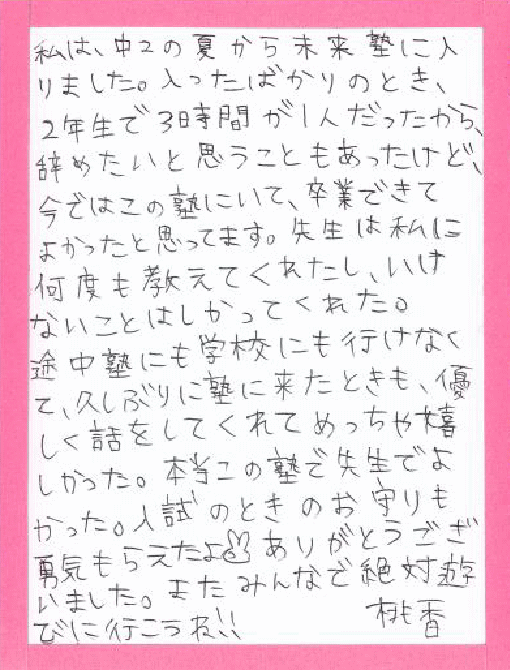 私は、中2の夏から未来塾に入
りました。入ったばかりのとき、
2年生で3時間が1人だったから、
辞めたいと思うこともあったけど、
今ではこの塾にいて、卒業できて
よかったと思ってます。先生は私に
何度も教えてくれたし、いけ
ないことはしかってくれた。
途中塾にも学校にも行けなく
て、久しぶりに塾に来たときも、優
しく話をしてくれてめっちゃ嬉
しかった。本当この塾で先生でよ
かった。入試のときのお守りも
勇気もらえたよ ありがとうござ
いました。またみんなで絶対遊
びに行こうね!!
桃香